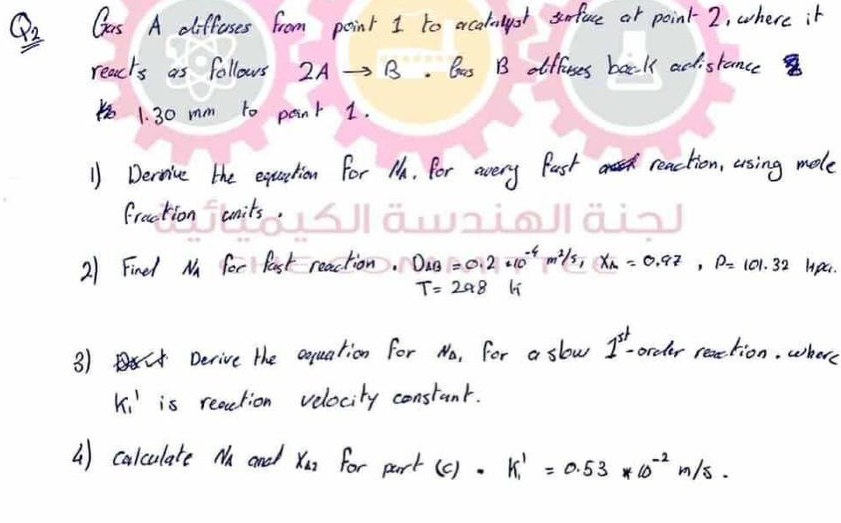 Q2 Gas A diffuses from point 1 to a catalyst surface at point 2, where it
reacts as follows 2A → B . Gas B diffuses back a distance
1.30 mm to point 1.
1) Derive the equation for NA. for a very fast reaction, using mole
fraction units.
لجنة الهندسة الكيميائية
2) Find NA for fast reaction. DAB = 0.2 *10^-4 m²/s, XA1 = 0.97 , P= 101.32 kPa.
T= 298 K
3) Derive the equation for NA, for a slow 1st-order reaction. where
K1' is reaction velocity constant.
4) calculate NA and XA2 for part (c) . K1' = 0.53 * 10^-2 m/s.